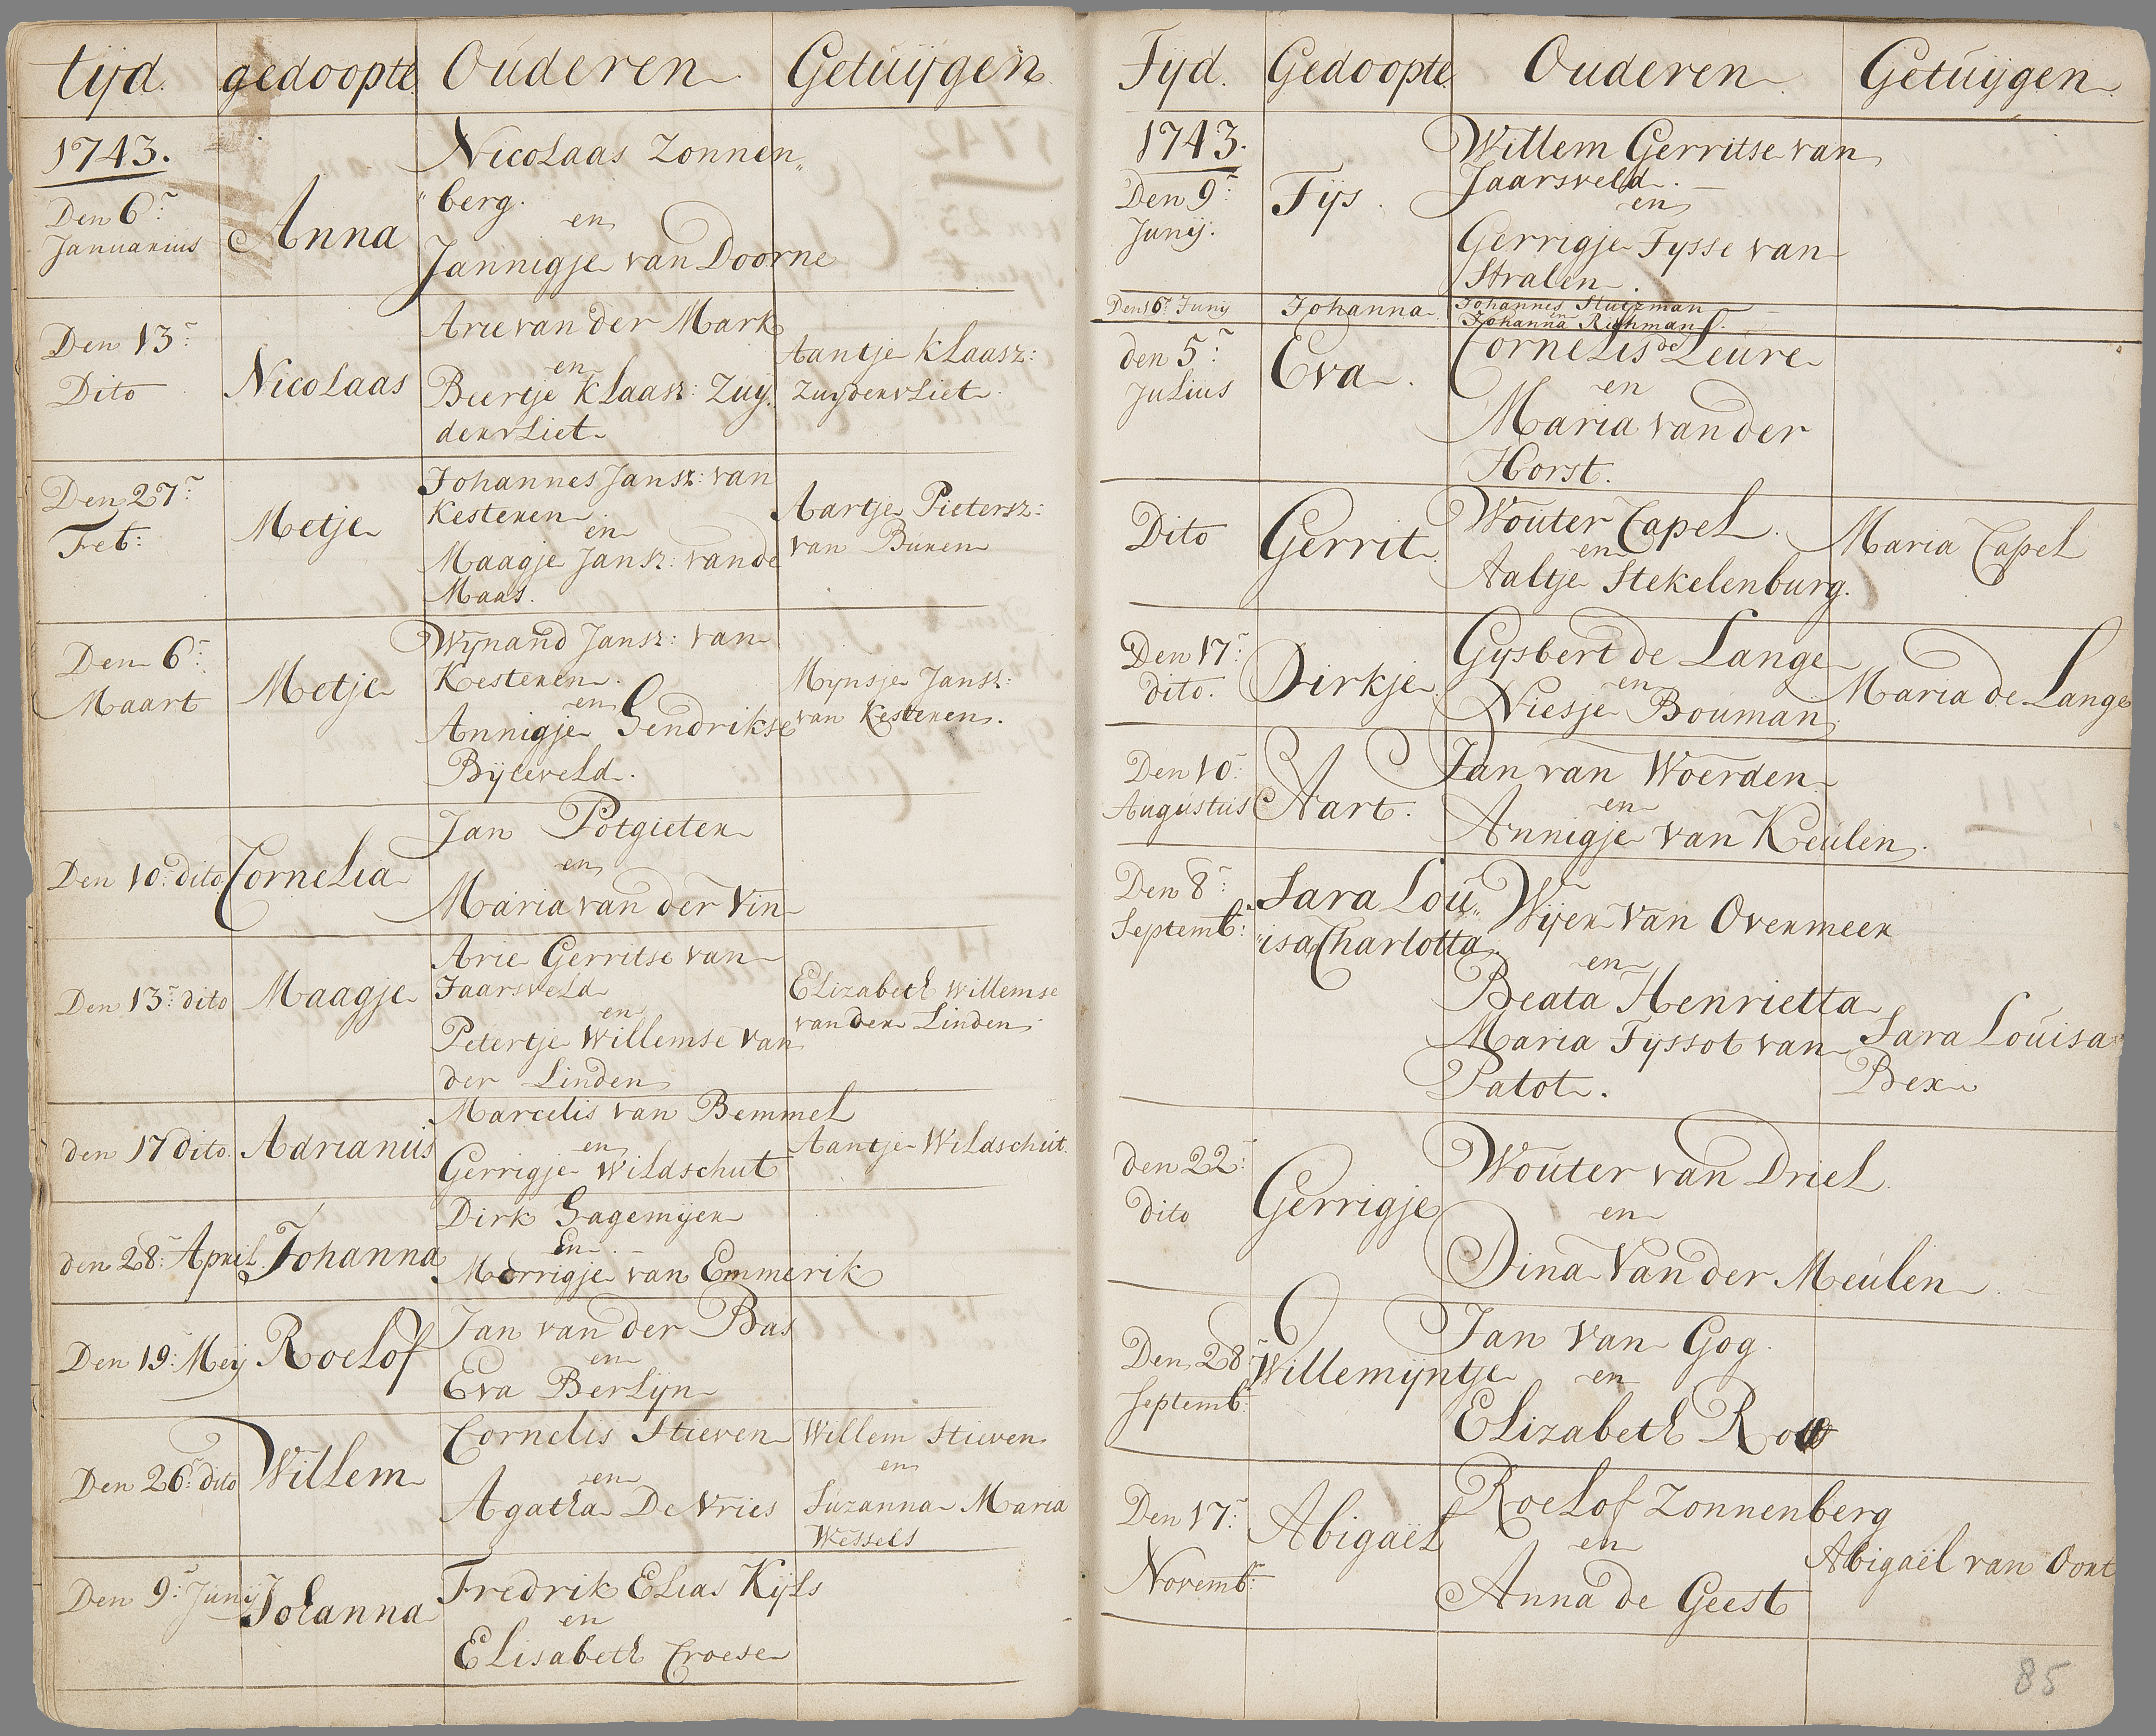 tijd. gedoopte Ouderen Getuijgen
1743.
Den 6:
Januarius
Anna
Nicolaas Zonnen„
„berg.
en
Jannigje van Doorne
Den 13:
Dito
Nicolaas
Arie van der Mark
en
Beertje Klaasz: Zuy„
denvliet
Aantje Klaasz:
Zuydenvliet
Den 27:
Feb:
Metje
Johannes Jansz: van
Kesteren
en
Maagje Jansz: vande
Maas.
Aartje Pietersz:
van Buren
Den 6:
Maart
Metje
Wynand Jansz: van
Kesteren.
en
Annigje Hendrikse
Byleveld.
Mynsje Jansz:
van Kesteren.
Den 10: dito
Cornelia
Jan Potgieter
en
Maria van der Vin
Den 13: dito
Maagje
Arie Gerritse van
Jaarsveld
en
Petertje Willemse van
der Linden
Elizabeth Willemse
van der Linden
den 17 dito.
Adrianus
Marcelis van Bemmel
en
Gerrigje Wildschut
Aantje Wildschut.
den 28: April.
Johanna
Dirk Hagemijer
En
Merrigje van Emmerik
Den 19: Meij
Roelof
Jan van der Bas
en
Eva Berlijn
Den 26: dito
Willem
Cornelis Stieven
en
Agatha De Vries
Willem Stieven
en
Suzanna Maria
Wessels
Den 9: Junij
Johanna
Fredrik Elias Kijls
en
Elisabeth Croese
Tijd. Gedoopte Ouderen Getuijgen
1743.
Den 9:
Junij.
Tijs.
Willem Gerritse van
Jaarsveld.
en
Gerrigje Tysse van
Stralen.
Den 16: Junij
Johanna
Johannes Stutzman
en
Johanna Richman
den 5:
Julius
Eva.
Cornelis de Leure
en
Maria van der
Horst.
Dito
Gerrit
Wouter Capel.
en
Aaltje Stekelenburg.
Maria Capel
Den 17:
dito.
Dirkje
Gysbert de Lange
en
Niesje Bouman
Maria de Lange
Den 10:
Augustus
Aart.
Jan van Woerden
en
Annigje van Keulen.
Den 8:
Septemb:
Sara Lou„
„isa Charlotta
Wijer van Overmeer
en
Beata Henrietta
Maria Tyssot van
Patot.
Sara Louisa
Bex
den 22:
dito
Gerrigje
Wouter van Driel.
en
Dina van der Meulen
Den 28:
Septemb:
Willemijntje
Jan van Gog.
en
Elizabeth
Den 17:
Novemb:
Abigaël
Roelof Zonnenberg
en
Anna de Geest
Abigaël van Oort
85